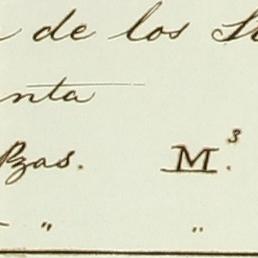 de los
nta
Pzas. M.³
" "